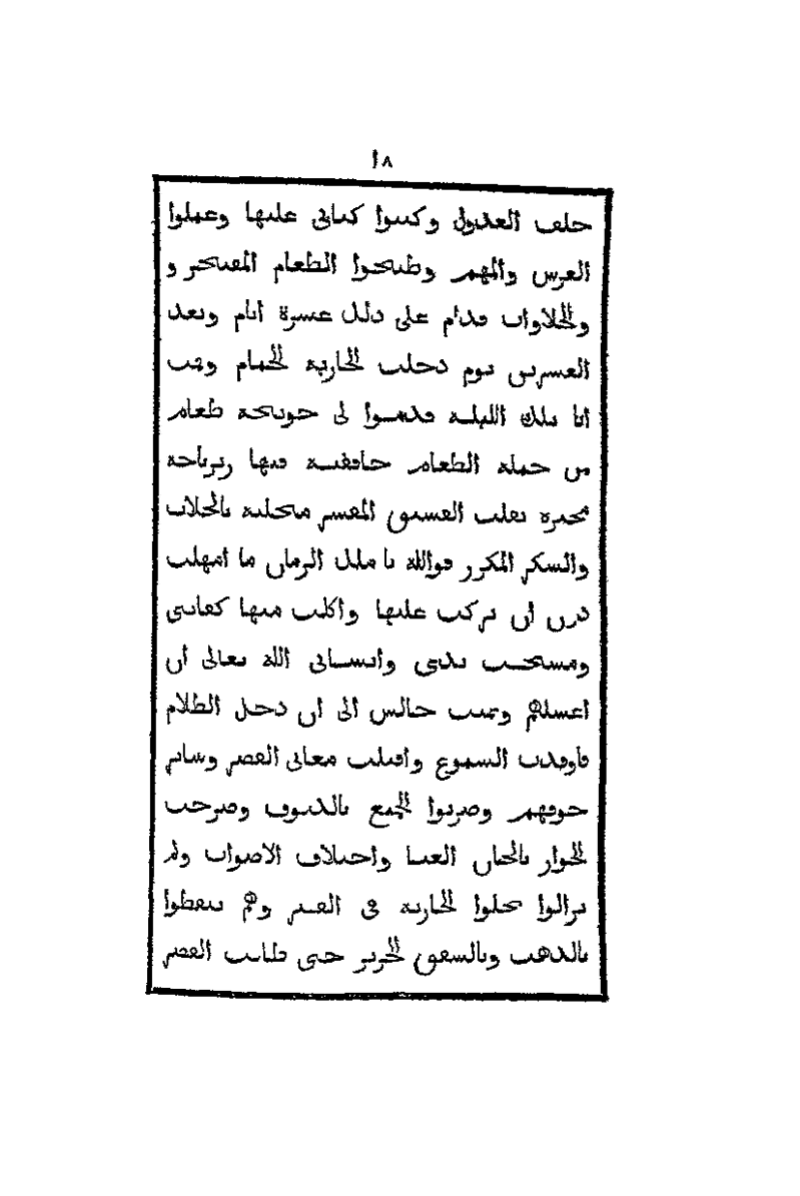 ١٨
خلف العدول وكتبوا كتابى عليها وعملوا
العرس والمهم وطبخوا الطعام المفتخر و
والحلاوات فدام على ذلك عشرة ايام وبعد
العشرين يوم دخلت الجارية الحمام وبت
انا تلك الليلة قدموا لى خونجة طعام
من جملة الطعام خافقية فيها زيرباجة
مخثرة بقلب الفستق المقشر متحلية بالجلاب
والسكر المكرر فوالله يا ملك الزمان ما امهلت
درن ان بركت عليها واكلت منها كفايتى
ومسحت يدى وانسانى الله تعالى ان
اغسلهم وتميت جالس الى ان دخل الظلام
فاوقدت الشموع واقبلت مغانى القصر وساير
جوقهم وضربوا الجميع بالدفوف وضرحت
الجوار بالحان الغنا واختلاف الاصوات ولم
يزالوا يجلوا الجارية فى القصر وهم ينقطوا
بالذهب وبالشقق الحرير حتى طابت القصر